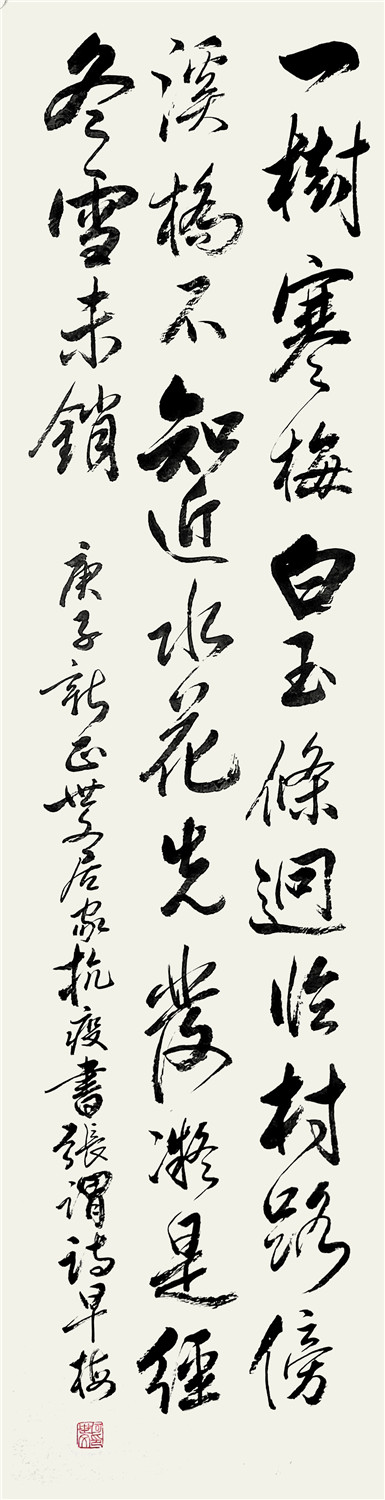 一樹寒梅白玉條迥臨村路傍
溪橋不知近水花先發凝是經
冬雪未銷 庚子新正世文居家抗疫書張謂詩早梅